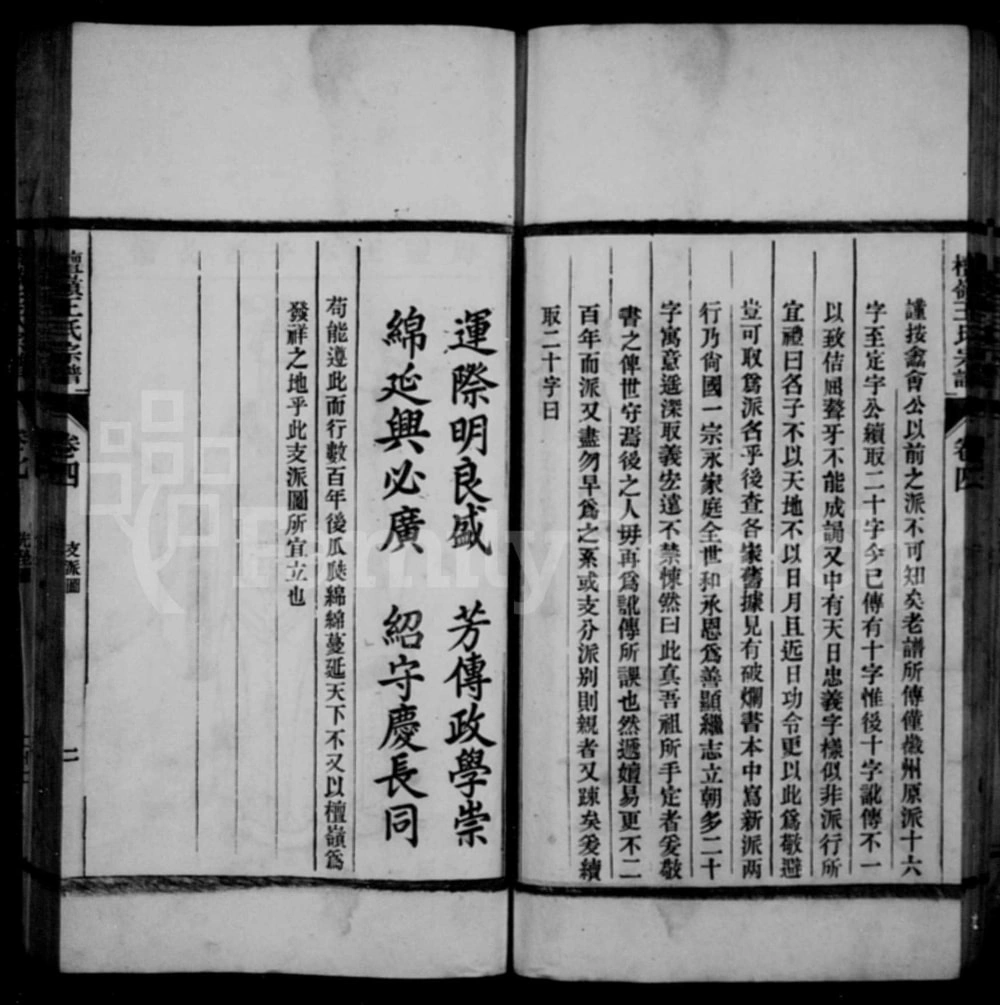 謹按鑫會公以前之派不可知矣老譜所傳僅徽州原派十六
字至定字公續取二十字今已傳有十字惟後十字訛傳不一
以致佶屈聱牙不能成誦又中有天日忠義字樣似非派行所
宜禮曰名子不以天地不以日月且近日功令更以此為敬避
豈可取為派名乎後查各家舊據見有破爛書本中寫新派兩
行乃尚國一宗永家庭全世和承恩為善顯繼志立朝多二十
字寓意遥深取義宏遠不禁悚然曰此真吾祖所手定者爰敬
書之俾世守焉後之人毋再為訛傳所誤也然遞嬗易更不二
百年而派又盡勿早為之系或支分派别則親者又疎矣爰續
取二十字曰
運際明良盛 芳傳政學崇
綿延興必廣 紹守慶長同
苟能遵此而行數百年後瓜瓞綿綿蔓延天下不又以檀嶺為
發祥之地乎此支派圖所宜立也
檀嶺王氏宗譜 卷四 支派圖 二
檀嶺王氏宗譜 卷四
FamilySearch